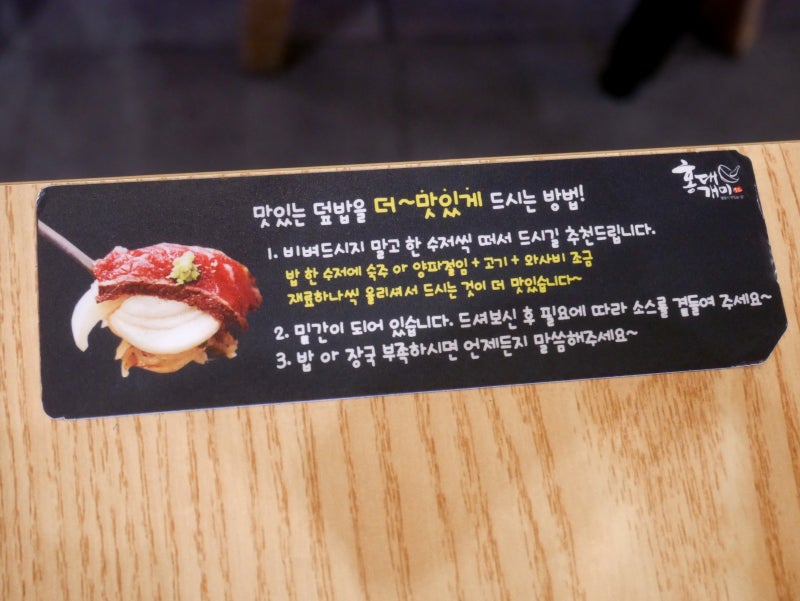 홍대개미
맛있는 덮밥을 더~맛있게 드시는 방법!
1. 비벼드시지 말고 한 수저씩 떠서 드시길 추천드립니다.
밥 한 수저에 숙주 or 양파절임 + 고기 + 와사비 조금
재료하나씩 올리셔서 드시는 것이 더 맛있습니다~
2. 밑간이 되어 있습니다. 드셔보신 후 필요에 따라 소스를 곁들여 주세요~
3. 밥 or 장국 부족하시면 언제든지 말씀해주세요~